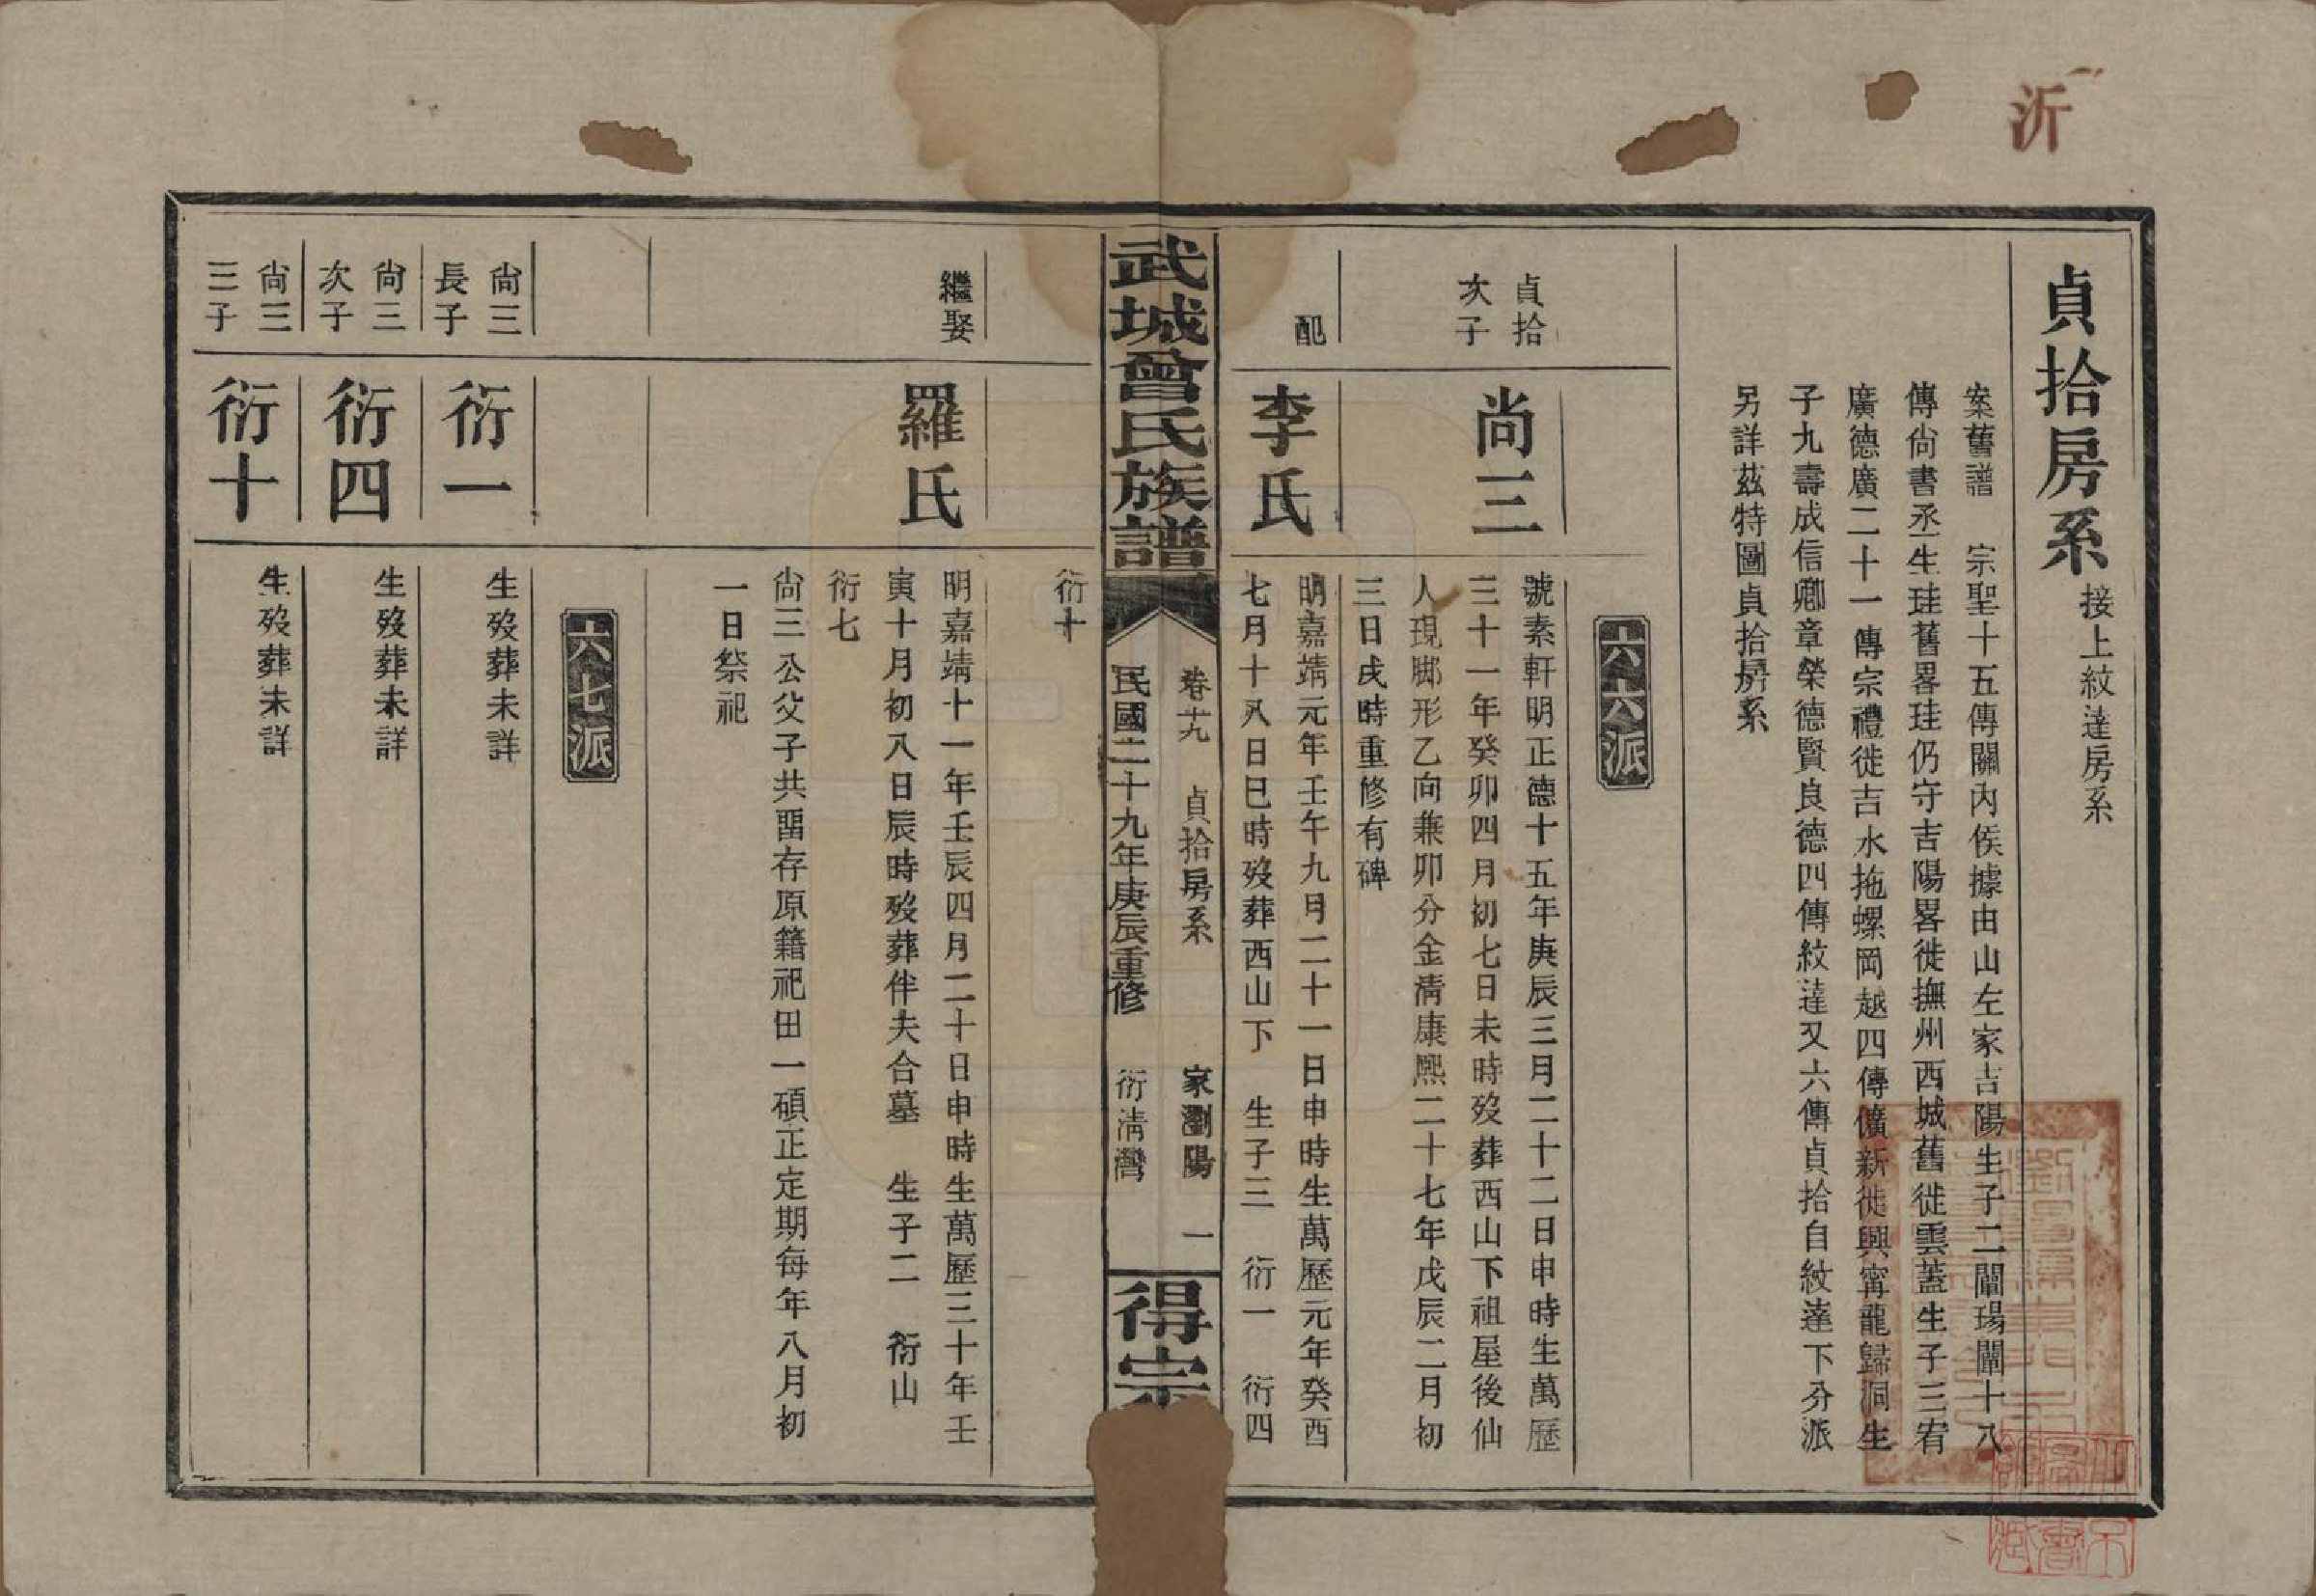 沂
貞拾房系 接上紋達房系
案舊譜 宗聖十五傳關內侯據由山左家吉陽生子二闡瑒闡十八
傳尙書丞生珪舊畧珪仍守吉陽畧徙撫州西城舊徙雲蓋生子三宥
廣德廣二十一傳宗禮徙吉水拖螺岡越四傳儣新徙興甯龍歸洞生
子九壽成信卿章榮德賢良德四傳紋達又六傳貞拾自紋達下分派
另詳茲特圖貞拾房系
六六派
貞拾
次子
尚三
號素軒明正德十五年庚辰三月二十二日申時生萬歷
三十一年癸卯四月初七日未時歿葬西山下祖屋後仙
人現脚形乙向兼卯分金清康熙二十七年戊辰二月初
三日戌時重修有碑
配
李氏
明嘉靖元年壬午九月二十一日申時生萬歷元年癸酉
七月十八日巳時歿葬西山下 生子三 衍一 衍四
武城曾氏族譜
卷十九 貞拾房系 家瀏陽 一
民國二十九年庚辰重修 衍淸灣
得宗
衍十
繼娶
羅氏
明嘉靖十一年壬辰四月二十日申時生萬歷三十年壬
寅十月初八日辰時歿葬伴夫合墓 生子二 衍山
衍七
尙三公父子共畱存原籍祀田一碩正定期每年八月初
一日祭祀
六七派
尙三
長子
衍一
生歿葬未詳
尙三
次子
衍四
生歿葬未詳
尙三
三子
衍十
生歿葬未詳